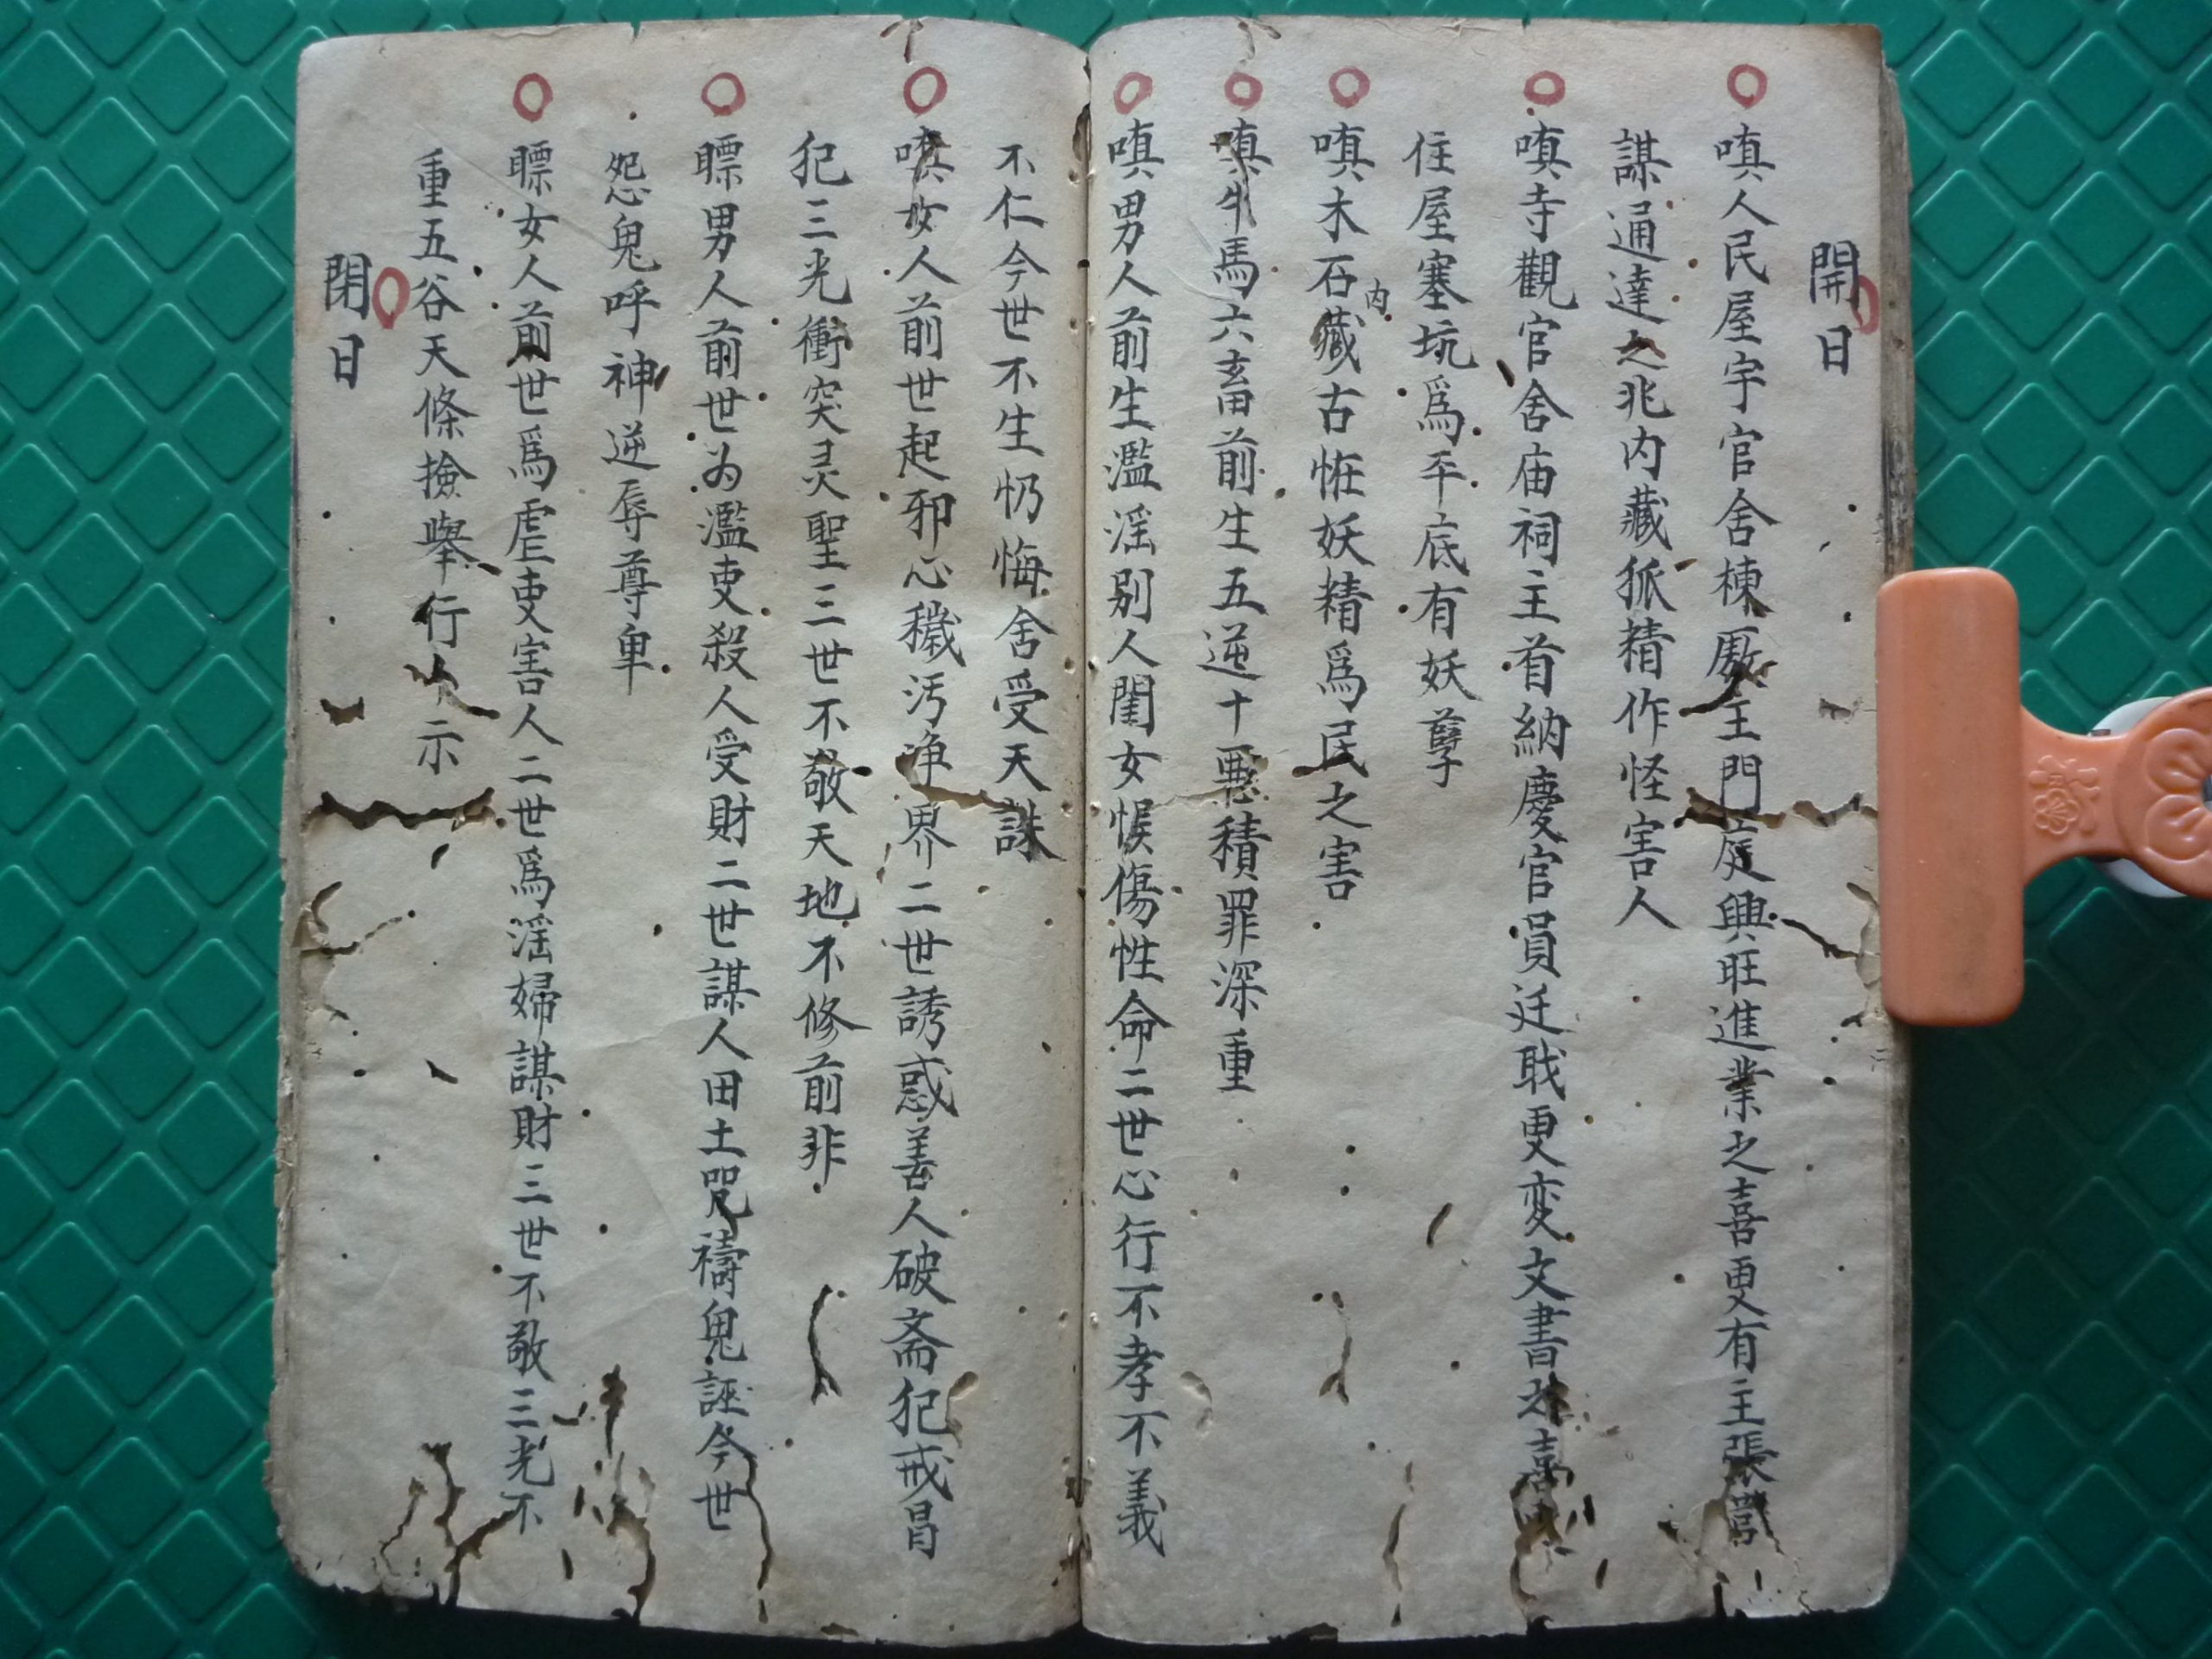 開日
嗔人民屋宇官舍棟厫主門庭興旺進業之喜更有主張
謀通達之兆内藏狐精作怪害人
嗔寺觀官舍庙祠主首納慶官員迁戝更变文書
住屋塞坑爲平底有妖孽
嗔木石内藏古恠妖精爲民之害
嗔牛馬六畜前生五逆十悪積罪深重
嗔男人前生濫淫别人閨女悮傷性命二世心行不孝不義
不仁今世不生忉悔舍受天誅
嗔女人前世起邪心穢汚净界二世誘惑善人破斋犯戒昌
犯三光衝突灵聖三世不敬天地不修前非
瞟男人前世为濫吏殺人受財二世謀人田土咒禱鬼誣今世
怨鬼呼神逆辱尊卑
瞟女人前世爲虐吏害人二世爲淫婦謀財三世不敬三光不
重五谷天條撿舉行示
閉日